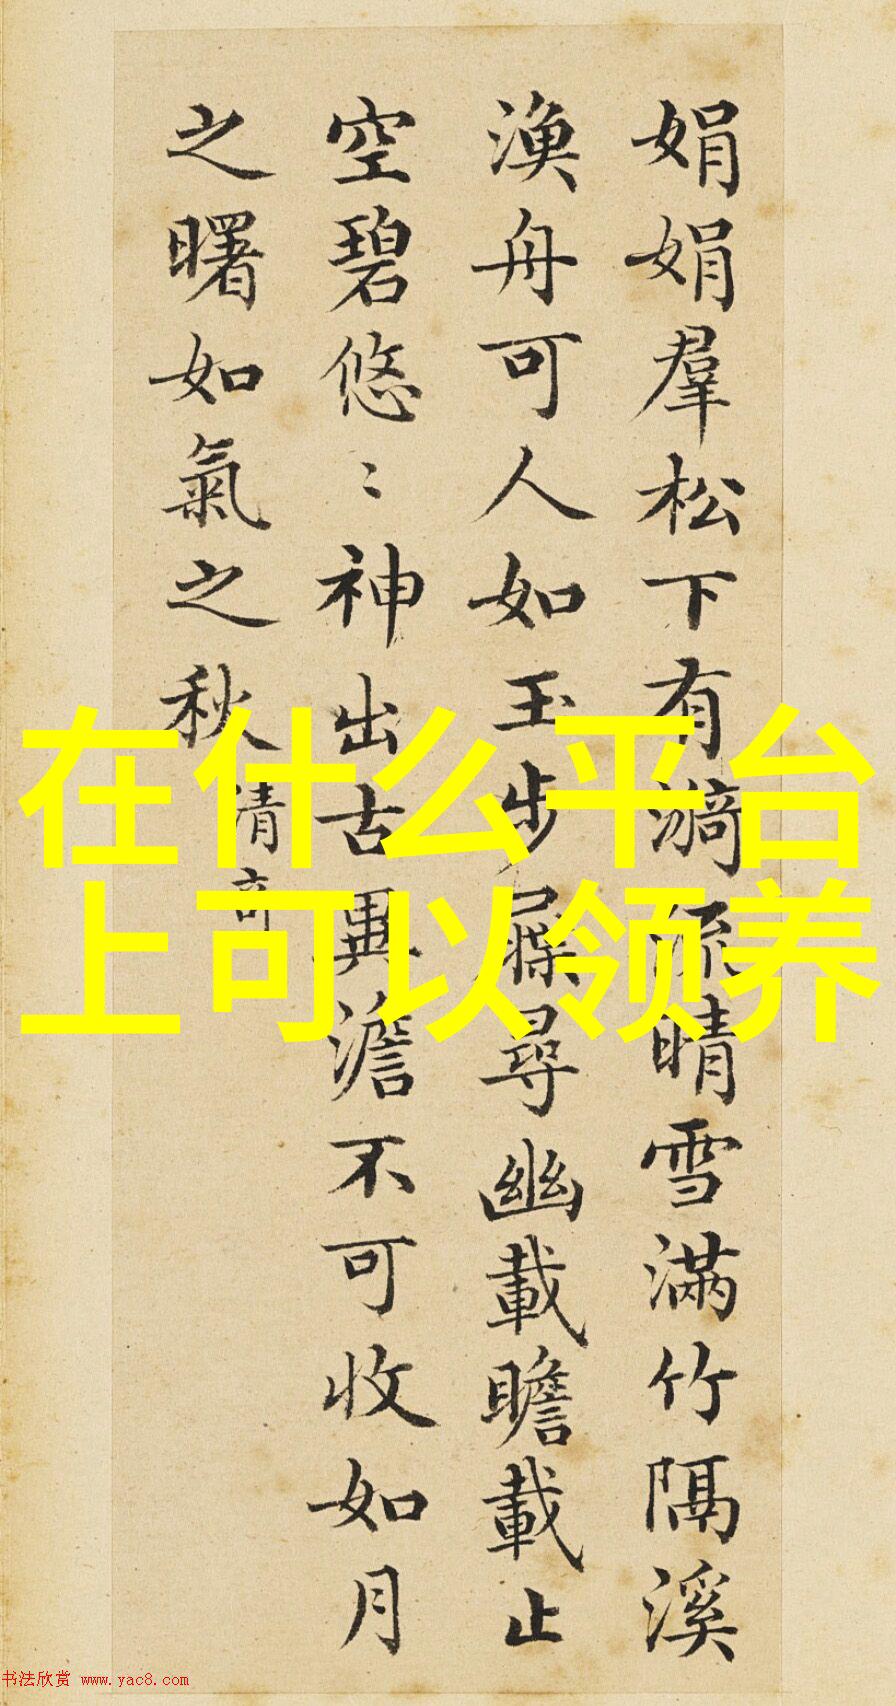 娟娟羣松下有漪流晴雪滿竹隔溪
漁舟可人如玉步屧尋幽載瞻載止
空碧悠〻神出古異澹不可收如月
之曙如氣之秋
清奇
在什么平台
上可以领养
书法欣赏 www.yac8.com